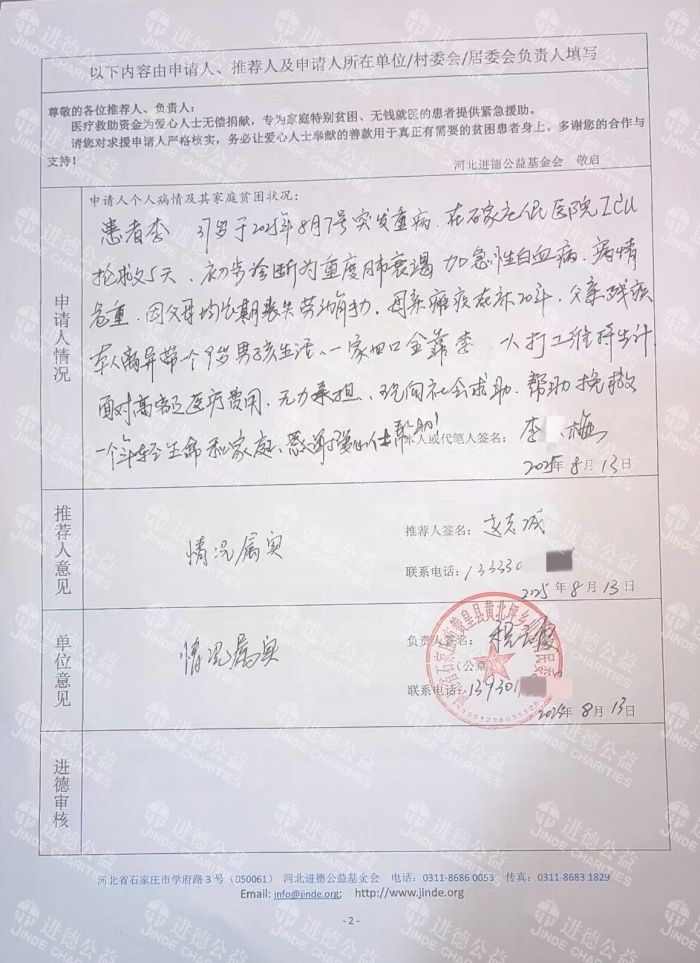 以下内容由申请人、推荐人及申请人所在单位/村委会/居委会负责人填写
尊敬的各位推荐人、负责人：
医疗救助资金为爱心人士无偿捐献，专为家庭特别贫困、无钱就医的患者提供紧急援助。
请您对求援申请人严格核实，务必让爱心人士奉献的善款用于真正有需要的贫困患者身上。多谢您的合作与
支持！
河北进德公益基金会 敬启
申请人情况
申请人个人病情及其家庭贫困状况：
患者李 37岁于2025年8月7号突发重病，在石家庄人民医院ICU
抢救5天、初步诊断为重度肺衰竭加急性白血病，病情
危重，因父母均长期丧失劳动能力，母亲瘫痪在床20年，父亲残疾
本人离异带一个9岁男孩生活、一家四口全靠李 一人打工维持生计
面对高额医疗费用，无力承担、现向社会求助，帮助挽救
一个年轻生命和家庭、
帮助！
本人或代笔人签名：李 梅
2025年8月13日
推荐人意见
情况属实
推荐人签名：
联系电话：133330
2025年8月13日
单位意见
情况属实
负责人签名：
（公章
联系电话：139301
2025年8月13日
赞皇县黄北坪乡
进德审核
河北省石家庄市学府路3号（050061） 河北进德公益基金会 电话：0311-8686 0053 传真：0311-8683 1829
Email: info@jinde.org; http://www.jinde.org
- 2 -
进德公益
JINDE CHARITIES